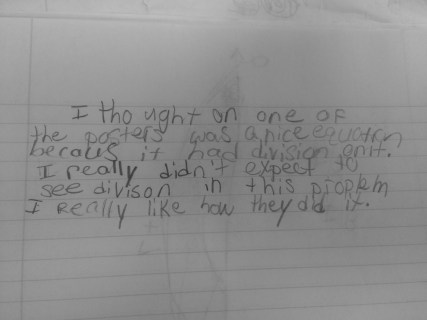 I thought on one of
the posters was a nice equation
becaus it had division on it.
I really didn't expect to
see divison in this problem
I really like how they did it.